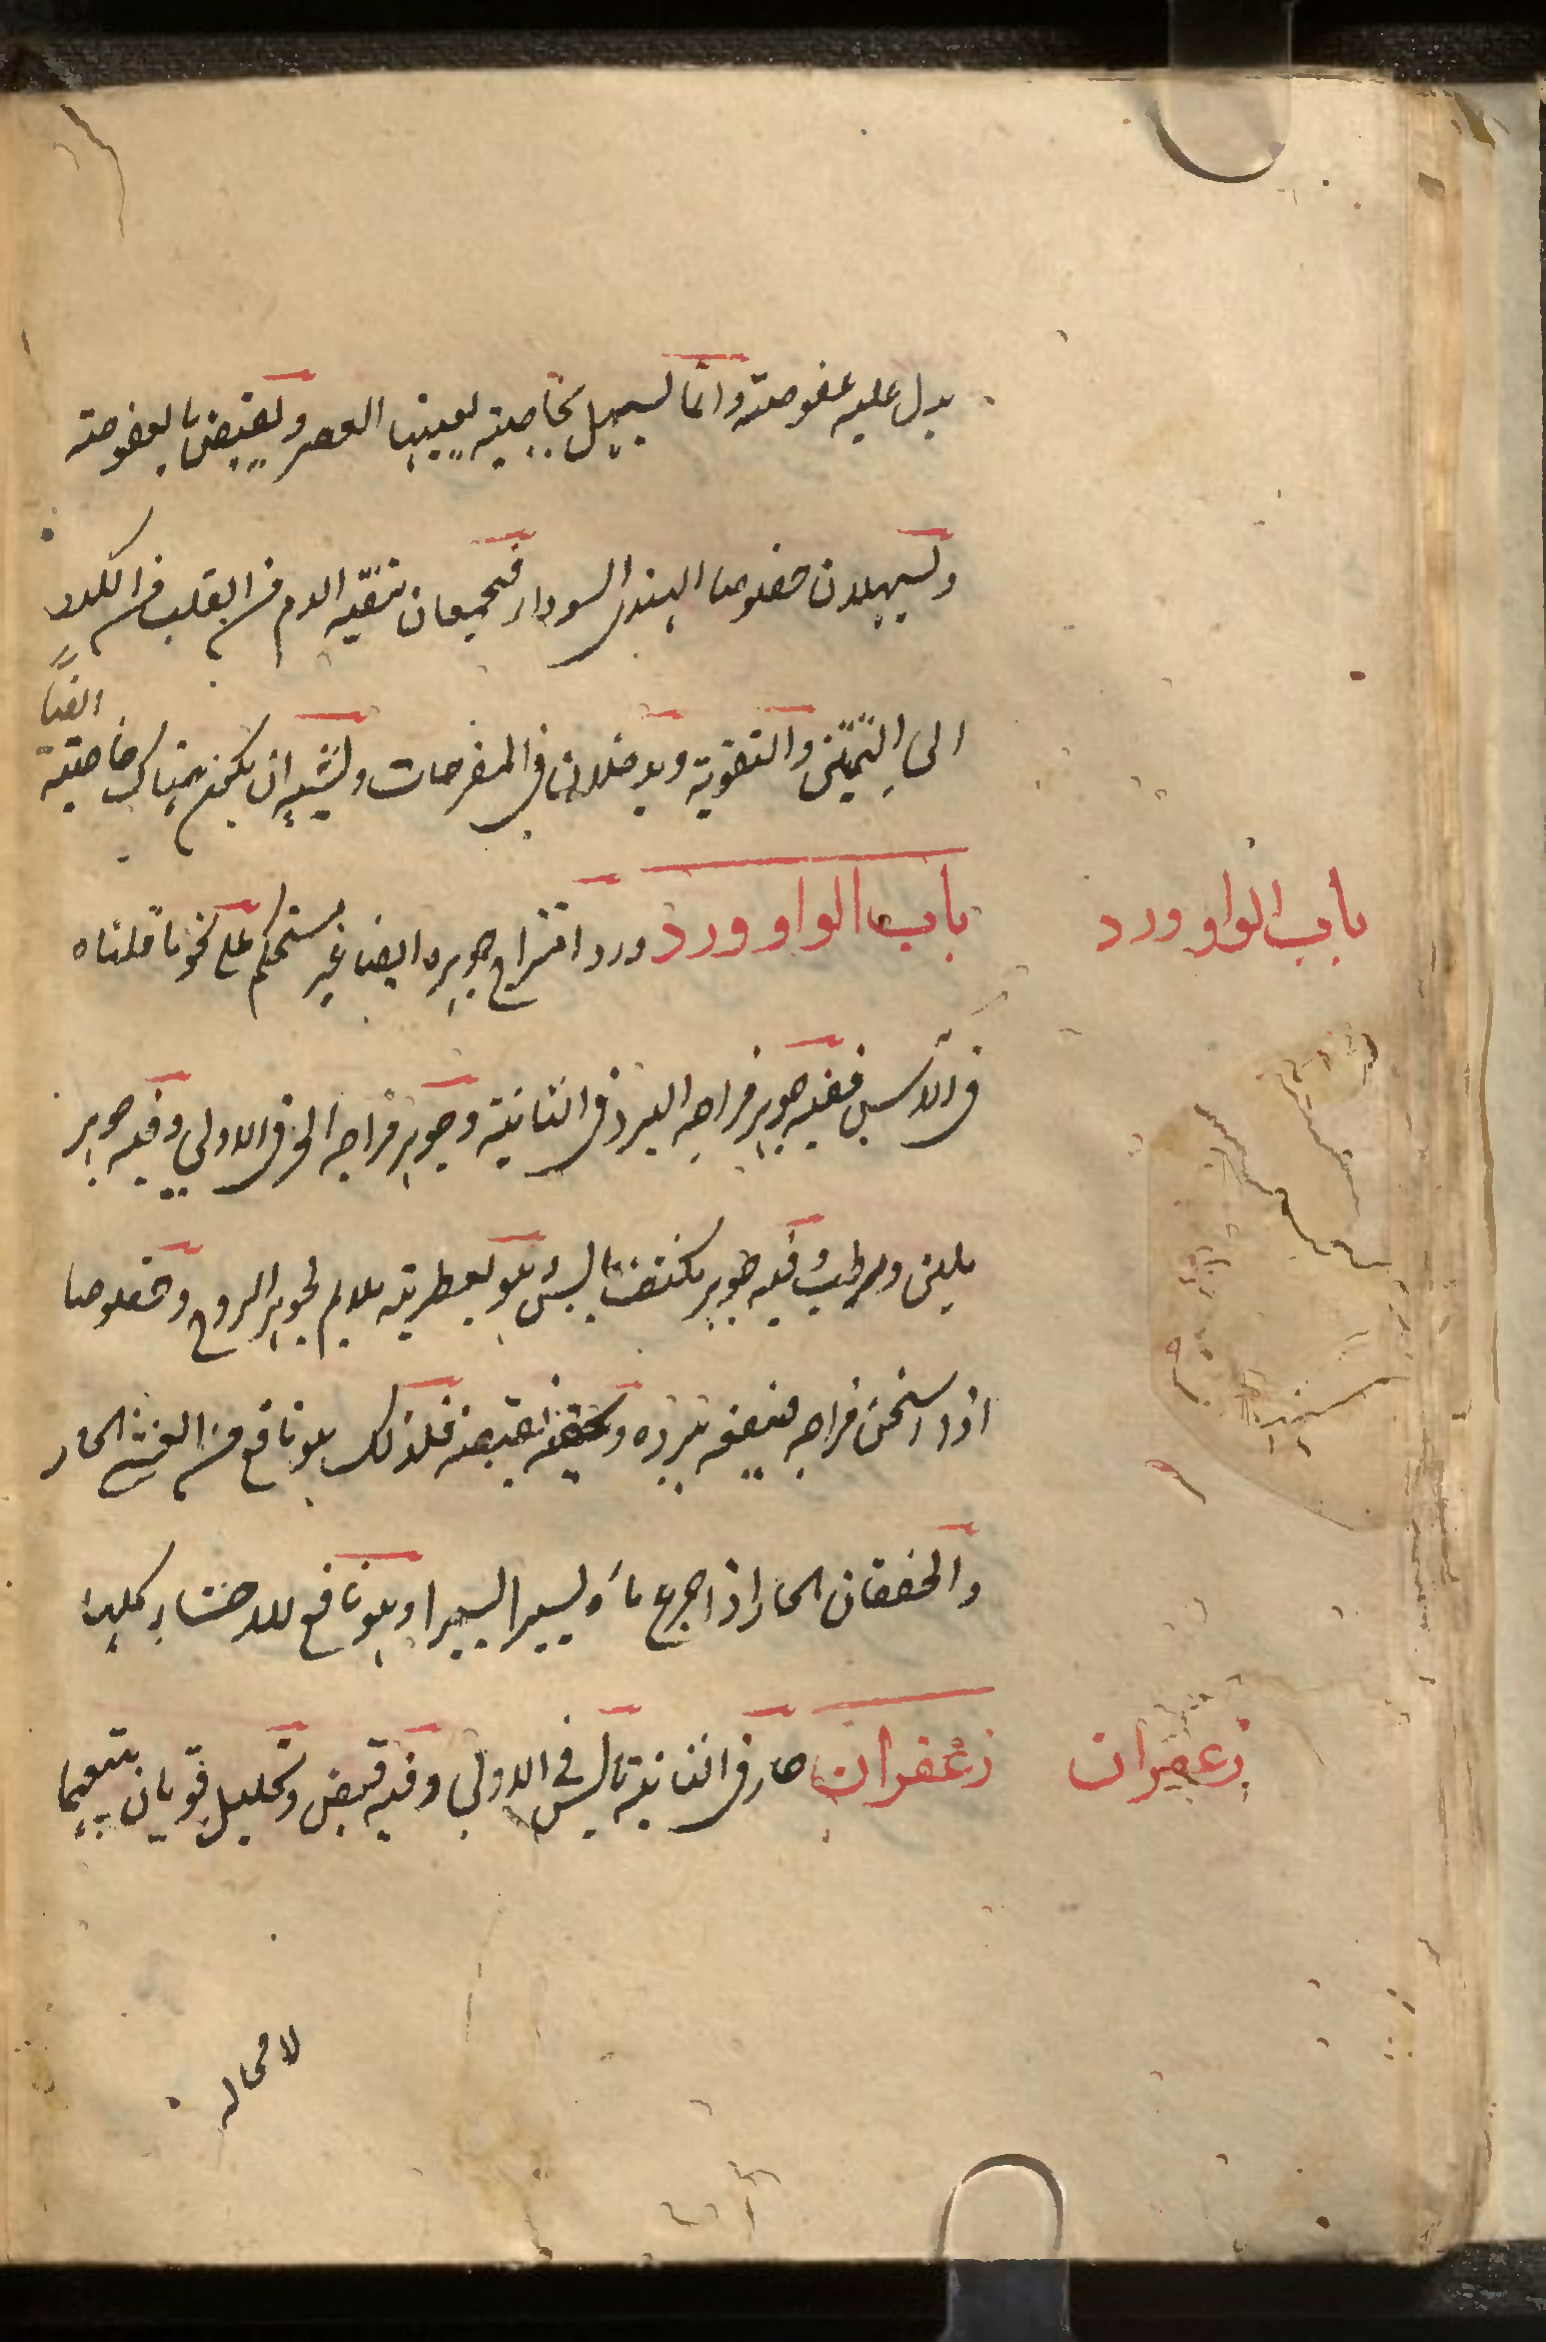 يدل عليه عفوصته وانما يسهل بخاصيته يعينها العصر ويقبض بالعفوصته
ويسهلان خصوصا الهندى السوداء فيجمعان تنقيه الدم من القلب من الكدر
الى التمتين والتقوية ويدخلان فى المفرحات ويشبه ان يكون هناك خاصيته
ايضا
باب الواو ورد
باب الواو ورد ورد امتزاج جوهره ايضا غير مستحكم على نحو ما قلناه
فى الاس ففيه جوهر مزاجه البرد فى الثانية وجوهر مزاجه الحر فى الاولى وفيه جوهر
يلين ويرطب وفيه جوهر يكثف ييبس هو لعطريته ملايم لجوهر الروح وخصوصا
اذا سخن مزاجه فينفعه ببرده وبقبضه فلذلك هو نافع من الغشى الحار
والخفقان الحار اذا جرع ماؤه يسيرا يسيرا وهو نافع للاحشاء كلها
زعفران
زعفران حار فى الثانية يابس فى الاولى وفيه قبض وتحليل قويان يتبعهما
لا محاله